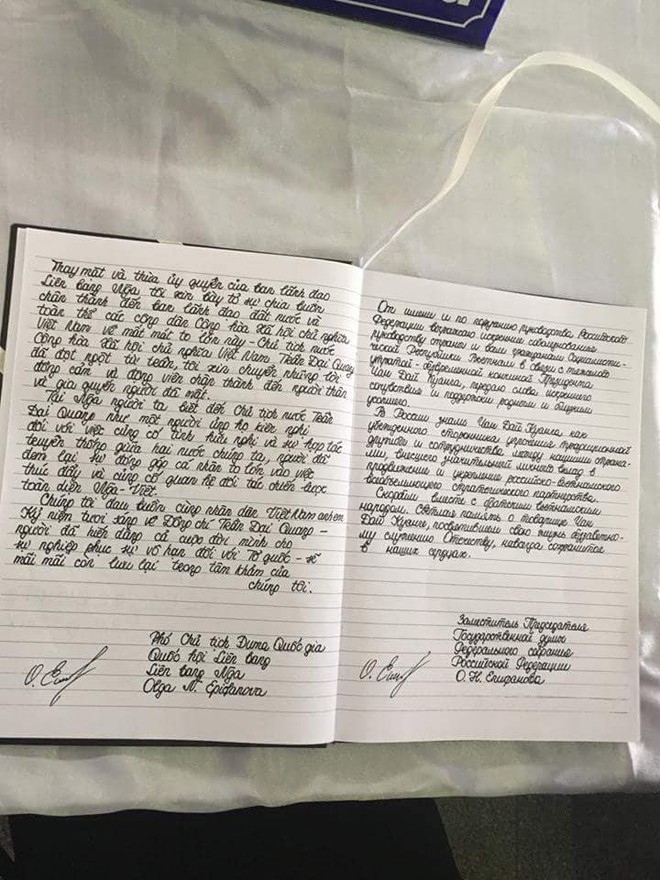 Thay mặt và thừa ủy quyền của ban lãnh đạo
Liên bang Nga tôi xin bày tỏ sự chia buồn
chân thành đến ban lãnh đạo đất nước và
toàn thể các công dân Cộng hòa Xã hội chủ nghĩa
Việt Nam về mất mát to lớn này - Chủ tịch nước
Cộng hòa Xã hội chủ nghĩa Việt Nam Trần Đại Quang
đã đột ngột từ trần, tôi xin chuyển những lời
đồng cảm và động viên chân thành đến người thân
và gia quyến người đã mất.
Tại Nga người ta biết đến Chủ tịch nước Trần
Đại Quang như một người ủng hộ kiên nghị
đối với việc củng cố tình hữu nghị và sự hợp tác
truyền thống giữa hai nước chúng ta, người đã
đem lại sự đóng góp cá nhân to lớn vào việc
thúc đẩy và củng cố quan hệ đối tác chiến lược
toàn diện Nga - Việt.
Chúng tôi đau buồn cùng nhân dân Việt Nam anh em.
Kỷ niệm tươi sáng về Đồng chí Trần Đại Quang -
người đã hiến dâng cả cuộc đời mình cho
sự nghiệp phục sự vô hạn đối với Tổ quốc - sẽ
mãi mãi còn lưu lại trong tâm khảm của
chúng tôi.
Phó Chủ tịch Duma Quốc gia
Quốc hội Liên bang
Liên bang Nga
Olga N. Epifanova
От имени и по поручению руководства Российской
Федерации выражаю искренние соболезнования
руководству страны и всем гражданам Социалисти-
ческой Республики Вьетнам в связи с тяжелой
утратой - безвременной кончиной Президента
Чан Дай Куанга, передаю слова искреннего
сочувствия и поддержки родным и близким
усопшего.
В России знали Чан Дай Куанга как
убежденного сторонника упрочения традиционной
дружбы и сотрудничества между нашими страна-
ми, внесшего значительный личный вклад в
продвижение и укрепление российско-вьетнамского
всеобъемлющего стратегического партнерства.
Скорбим вместе с братским вьетнамским
народом. Светлая память о товарище Чан
Дай Куанге, посвятившем свою жизнь беззаветно-
му служению Отечеству, навсегда сохранится
в наших сердцах.
Заместитель Председателя
Государственной думы
Федерального собрания
Российской Федерации
О. Н. Епифанова